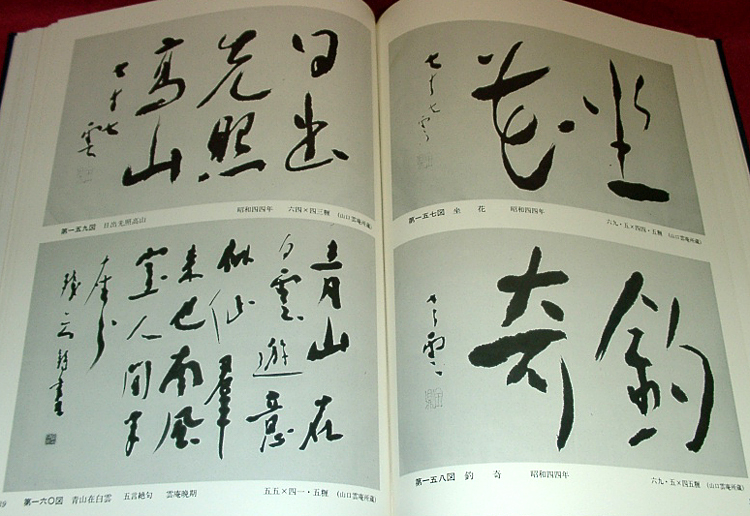 坐
花
第一五七図 坐 花 昭和四四年 六九・五×四四・五糎 (山口雲庵所蔵)
釣
奇
第一五八図 釣 奇 昭和四四年 六九・五×四五糎 (山口雲庵所蔵)
日出
先照
高山
七十七雲
第一五九図 日出先照高山 昭和四四年 六四×四三糎 (山口雲庵所蔵)
青山在
白雲遊意
似仙群
来也南風
窓人間事
第一六〇図 青山在白雲 五言絶句 雲庵晩期 五五×四一・五糎 (山口雲庵所蔵)